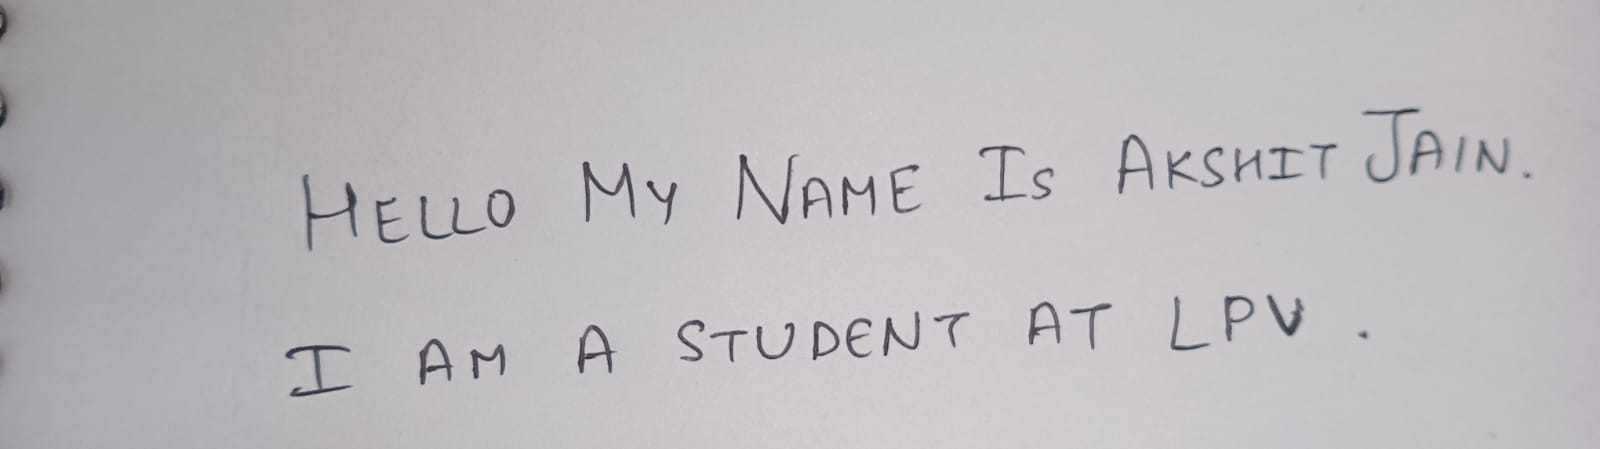 HELLO MY NAME IS AKSHIT JAIN.
I AM A STUDENT AT LPU.